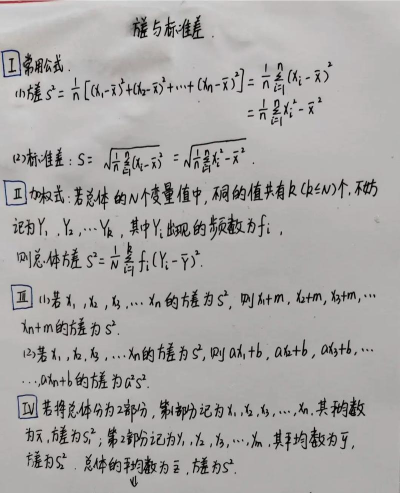 方差与标准差.
Ⅰ 常用公式.
(1)方差 s²=1/n[(x₁-x̄)²+(x₂-x̄)²+…+(xₙ-x̄)²]=1/n Σⁿᵢ₌₁(xᵢ-x̄)²
=1/n Σⁿᵢ₌₁xᵢ²-x̄²
(2)标准差: S=√(1/n Σⁿᵢ₌₁(xᵢ-x̄)²)=√(1/n Σⁿᵢ₌₁xᵢ²-x̄²).
Ⅱ 加权式:若总体的N个变量值中,不同的值共有k(k≤N)个,不妨
记为Y₁,Y₂,…Yₖ,其中Yᵢ出现的频数为fᵢ,
则总体方差 S²=1/N Σᵏᵢ₌₁fᵢ(Yᵢ-Ȳ)².
Ⅲ (1)若x₁,x₂,x₃,…xₙ的方差为s²,则x₁+m,x₂+m,x₃+m,…
xₙ+m的方差为s².
(2)若x₁,x₂,x₃,…xₙ的方差为s²,则ax₁+b,ax₂+b,ax₃+b,…
…,axₙ+b的方差为a²s².
Ⅳ 若将总体分为2部分,第1部分记为x₁,x₂,x₃,…,xₙ,其平均数
为x̄,方差为S₁²;第2部分记为y₁,y₂,y₃,…,yₘ,其平均数为ȳ,
方差为S₂².总体的平均数为z̄,方差为S².
⇓